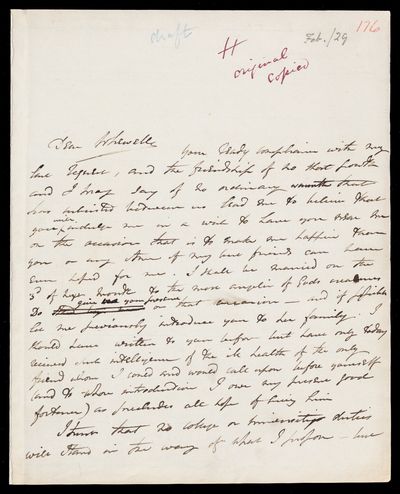 draft
#
original
copied
Feb./29
176
Dear Whewell
your ready compliance with my
last request, and the friendship of no short growth
and I may say of no ordinary warmth that
has subsisted between us lead me to believe that
you will me in a wish to have you near me
on the occasion that is to make me happier than
you or any other of my best friends can have
ever hoped for me. I shall be married on the
3d of next month to the most angelic of Gods creatures
Do give us your presence on that occasion and if possible
let me previously introduce you to her family. I
should have written to you before but have only today
received such intelligence of the ill health of the only
friend whom I could and would call upon before yourself
(and to whose introduction I owe my present good
fortune) as precludes all hope of seeing him
I trust that no college or university duties
will stand in the way of what I propose –